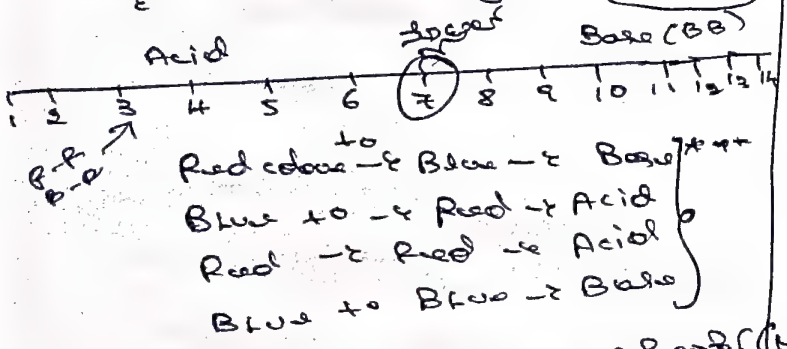 Acid Base (BB)
1 2 3 4 5 6 7 8 9 10 11 12 13 14
Red colour to → Blue → Base
Blue to → Red → Acid
Red → Red → Acid
Blue to Blue → Base